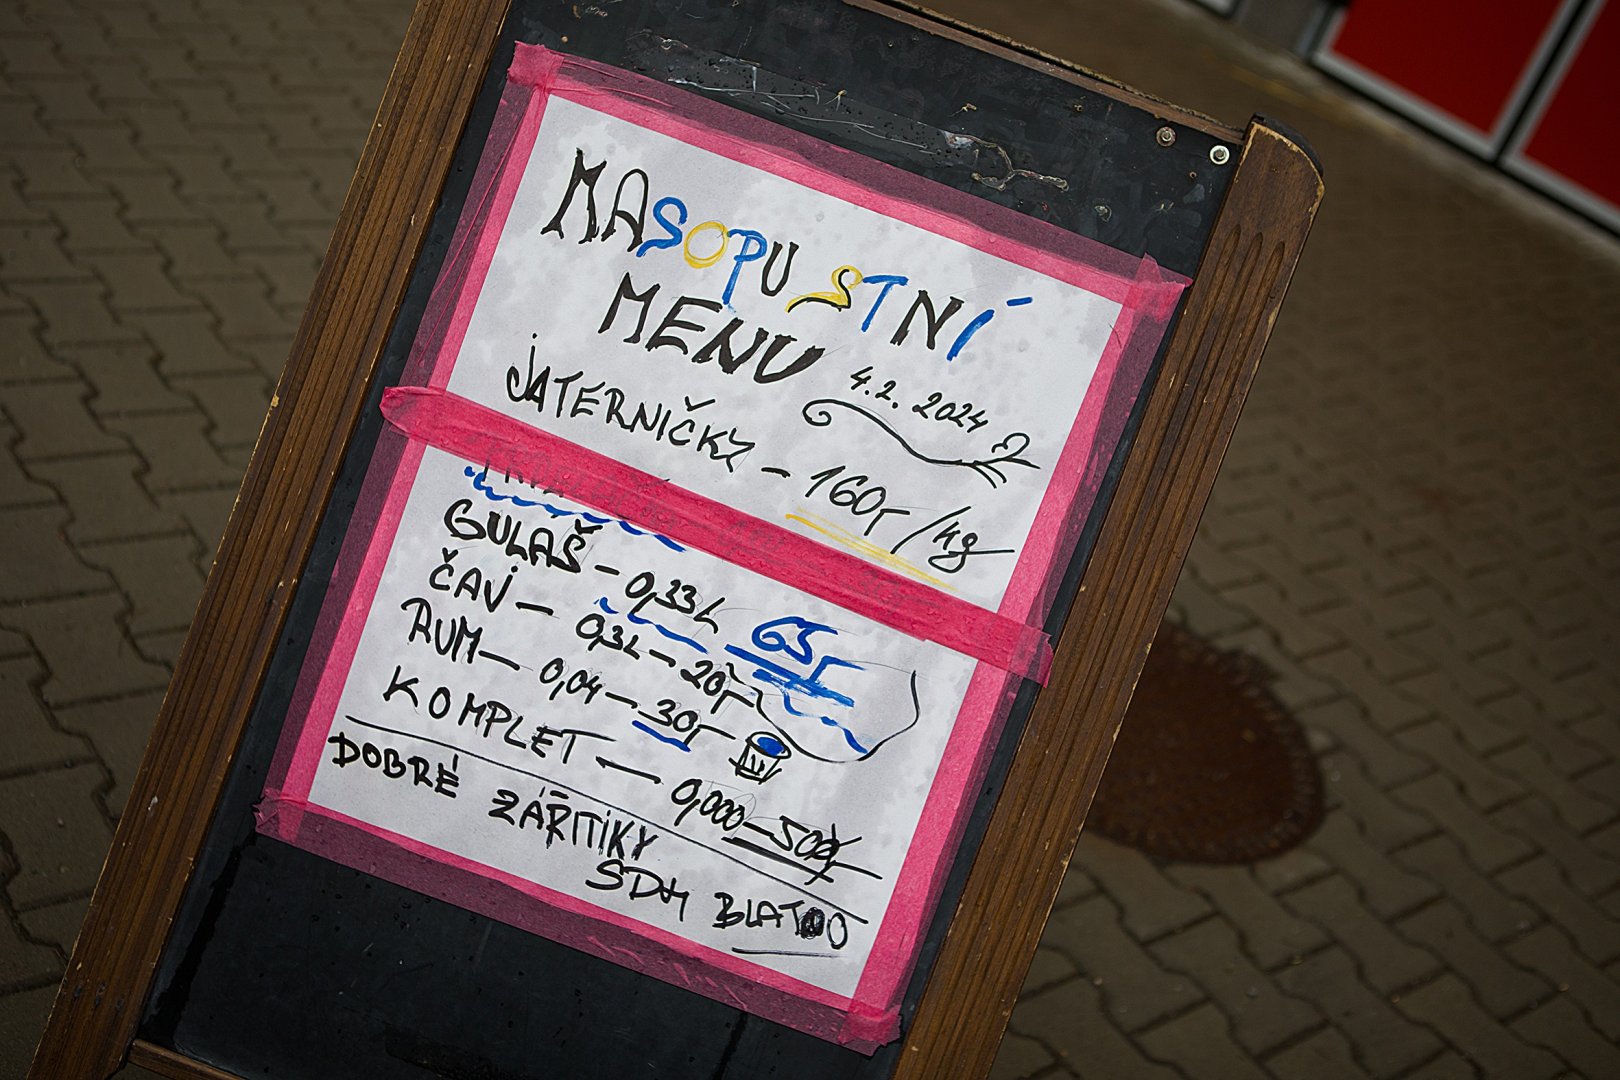 MASOPUSTNÍ
MENU
4.2. 2024
JATERNIČKY - 160,- /kg
GULÁŠ - 0,33L 65,-
ČAJ - 0,3L - 20,-
RUM - 0,04 - 30,-
KOMPLET - 0,000 - 50
DOBRÉ ZÁŘITÍKY
SDH BLATNO